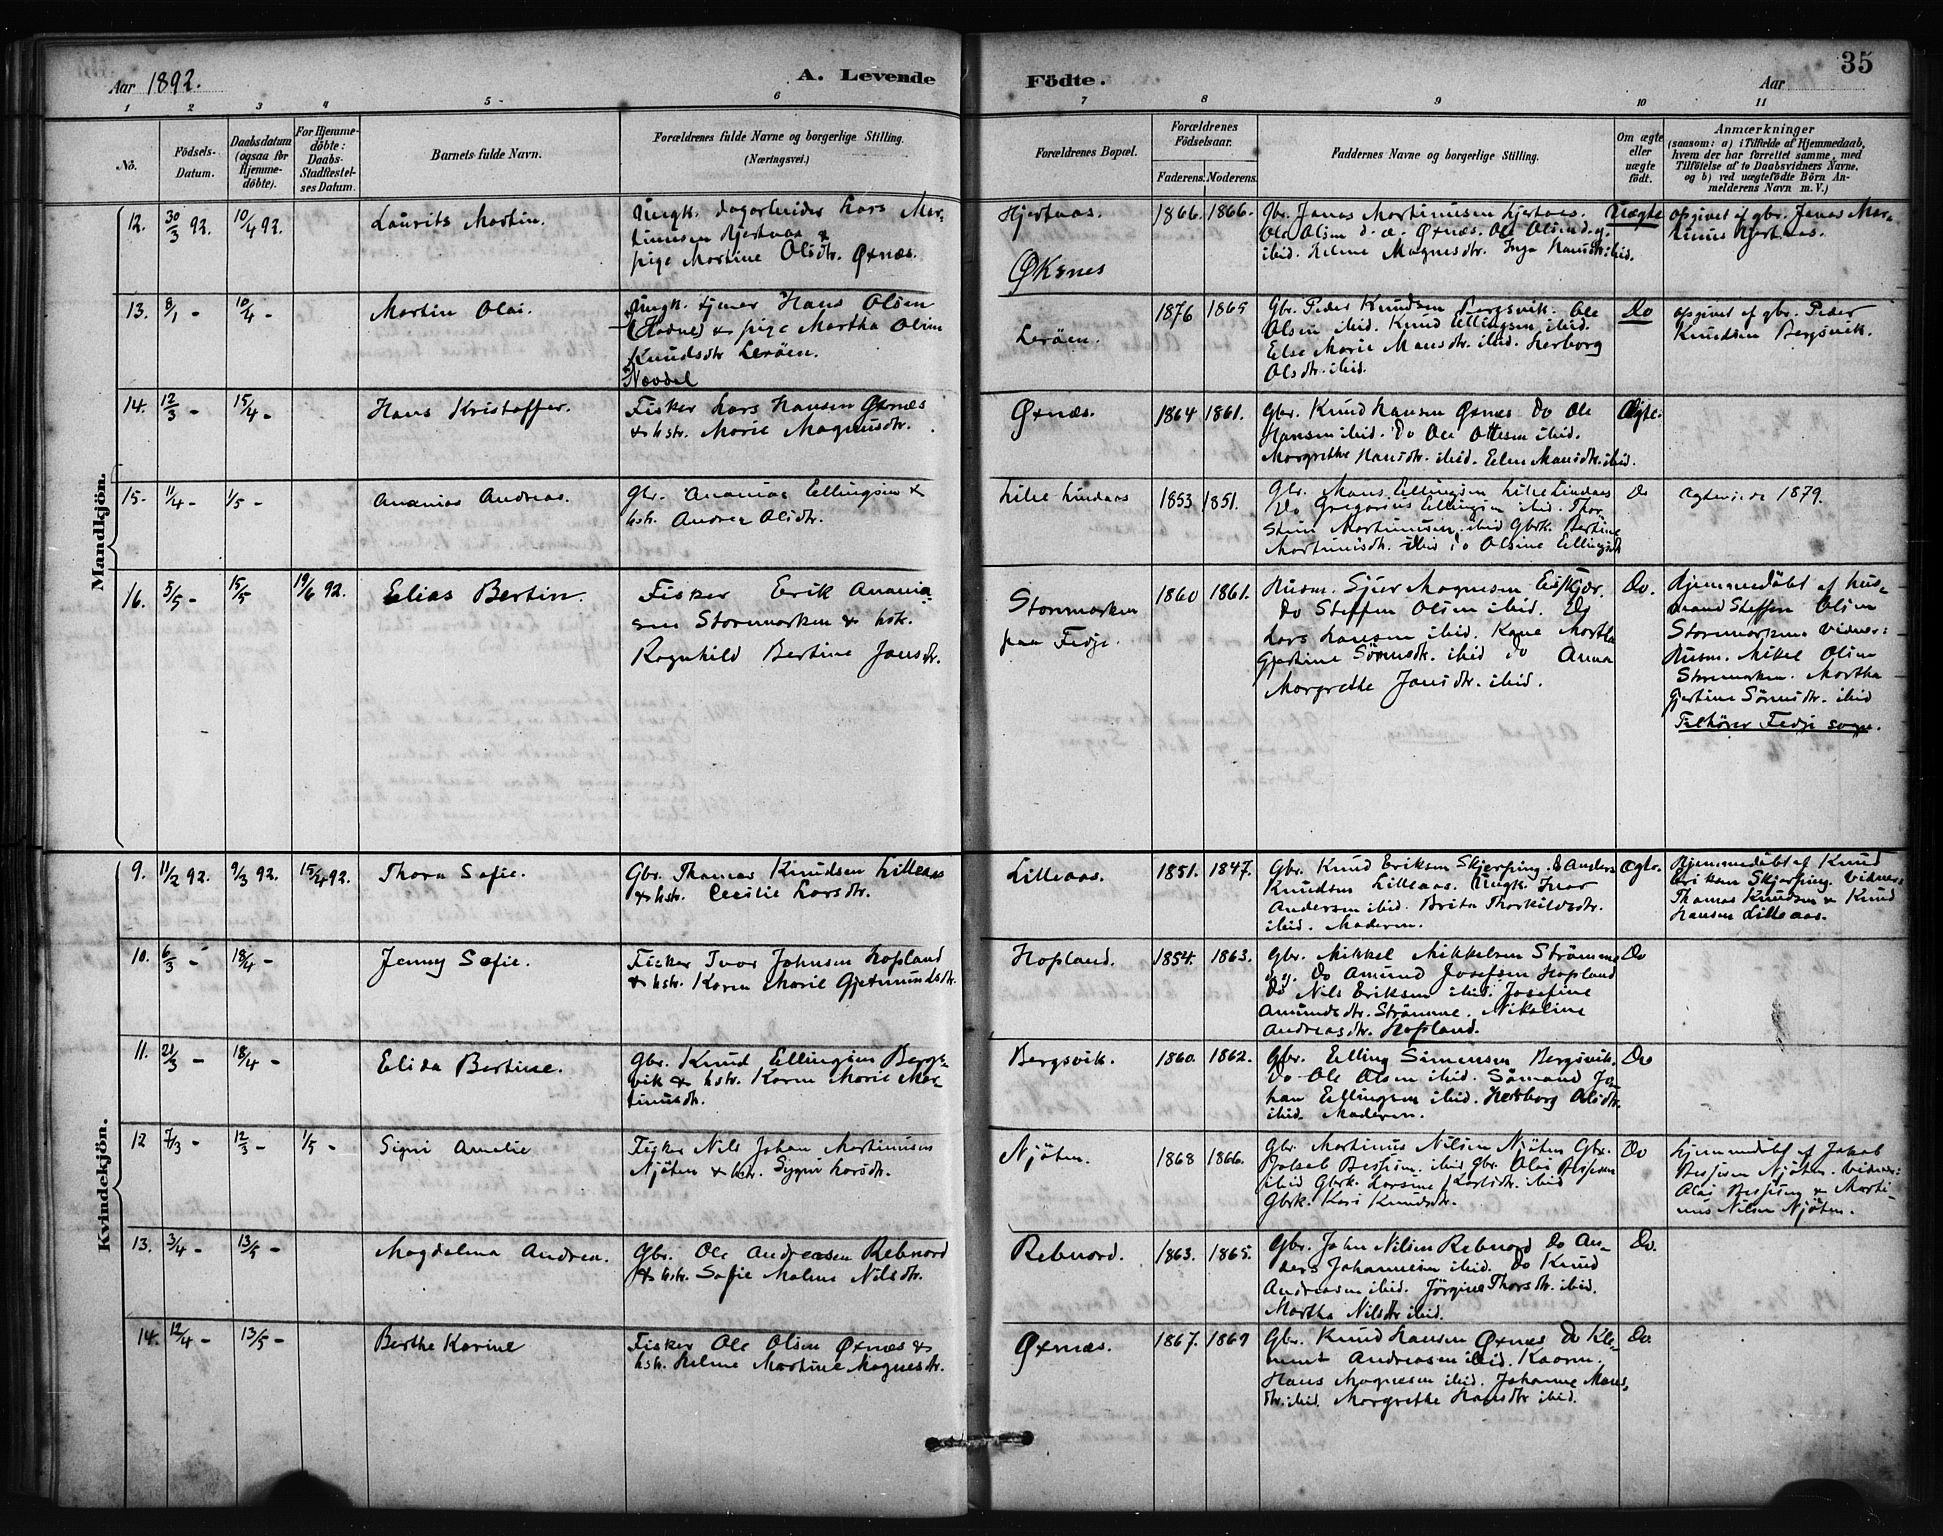 Aar 1892.
A. Levende
Födte.
Aar
35
1 2 3 4 5 6 7 8 9 10 11
Nö.
Födsels-
Datum.
Daabsdatum
(ogsaa for
Hjemme-
döbte).
For Hjemme-
döbte:
Daabs-
Stadfæstel-
ses Datum.
Barnets fulde Navn.
Forældrenes fulde Navne og borgerlige Stilling.
(Næringsvei.)
Forældrenes Bopæl.
Forældrenes
Födselsaar.
Faderens. Moderens.
Faddernes Navne og borgerlige Stilling.
Om ægte
eller
uægte
födt.
Anmærkninger
(saasom: a) i Tilfælde af Hjemmedaab,
hvem der har forrettet samme, med
Tilföielse af to Daabsvidners Navne,
og b) ved uægtefödte Börn An-
melderens Navn m. V.)
Mandkjön.
12. 30/3 92. 10/4 92.
Laurits Martin.
Ungk. dagarbeider Lars Mar-
tinusen Hjertaas &
pige Martine Olsdtr. Øxnæs.
Hjertaas.
Øksnes
1866. 1866.
Gbr. Jonas Martinusen Hjertaas.
Ole Olsen d. æ. Øxnæs. Ole Olsen d. y.
ibid. Helene Magnesdtr. Inga Hansdtr. ibid.
Uægte
opgivet af gbr. Jonas Mar-
tinus Hjertaas.
13. 8/1 - 10/4 -
Martin Olai.
Ungk. tjener Hans Olsen
(Hodne) & pige Martha Oline
Knudsdtr Leröen.
Leröen.
1876 1865
Gbr. Peder Knudsen Bergsvik. Ole
Olsen ibid. Knud Ellingsen ibid.
Else Marie Mansdtr. ibid. Herborg
Olsdtr. ibid.
Do
opgivet af gbr. Peder
Knudsen Bergsvik.
14. 12/3 - 15/4 -
Hans Kristoffer.
Fisker Lars Hansen Øxnæs
& hstr. Marie Magnusdtr.
Øxnæs.
1864 1861.
Gbr. Knud Hansen Øxnæs Do Ole
Hansen ibid. Do Ole Ottesen ibid.
Margrethe Hansdtr. ibid. Elen Mansdtr. ibid.
Ægte.
15- 11/4 - 1/5 -
Ananias Andreas.
Gbr. Ananias Ellingsen &
hstr. Andrea Olsdtr.
Lille Lindaas
1853 1851.
Gbr. Mons Ellingsen Lille Lindaas
Do Gregorius Ellingsen ibid. Thor
Stein Martinusen ibid Gbrk. Bertine
Martinisdtr. ibid Do Olsine Ellingsdtr
Do
1879.
16. 5/5 - 15/5 19/6 92.
Elias Bertin.
Fisker Erik Anania-
sen Stormarken & hstr.
Ragnhild Bertine Jansdtr.
Stormarken
paa Fedje.
1860 1861.
Husm. Sjur Magnesen Eiskjær.
Do Steffen Olsen ibid. Do
Lars Hansen ibid. Kone Martha
Gjertine Sörensdtr. ibid Do Anna
Margrethe Jansdtr. ibid.
Do.
Hjemmedöbt af hus-
mand Steffen Olsen
Stormarken. Vidner:
Husm. Mikel Olsen
Stormarken. Martha
Gjertine Sörensdtr. ibid
Tilhörer Fedje sogn.
Kvindekjön.
9. 11/2 92. 9/3 92. 15/4 92.
Thora Sofie.
Gbr. Thomas Knudsen Lilleaas
& hstr. Cecilie Larsdtr.
Lilleaas.
1851. 1847.
Gbr. Knud Eriksen Skjerping. Do Anders
Knudsen Lilleaas. Ungk. Ivar
Andersen ibid. Brita Thorkildsdtr.
ibid. Moderen.
Ægte.
Hjemmedöbt af Knud
Eriksen Skjerping. Vidner:
Thomas Knudsen & Knud
Hansen Lilleaas.
10. 6/3 - 18/4 -
Jenny Sofie.
Fisker Ivar Johnsen Hopland
& hstr. Karen Marie Gjetmundsdtr.
Hopland.
1854. 1863.
Gbr. Mikkel Mikkelsen Strömme
Do Amund Josefsen Hopland
Do Nils Eriksen ibid. Josefine
Amundsdtr. Strömme. Nikoline
Andreasdtr. Hopland.
Do
11. 21/3 - 18/4 -
Elida Bertine.
Gbr. Knud Ellingsen Bergs-
vik & hstr. Karen Marie Mar-
tinusdtr.
Bergsvik.
1860. 1862.
Gbr. Elling Simensen Bergsvik.
Do Ole Olsen ibid. Sömand Jo-
han Ellingsen ibid. Herborg Olsdtr.
ibid. Moderen.
Do
12 7/3 - 12/3 - 1/5 -
Signi Amelie
Fisker Nils Johan Martinusen
Njöten & hstr. Sygni Larsdtr.
Njöten.
1868 1866.
Gbr. Martinus Nilsen Njöten Gbr.
Jakob Bessesen ibid Gbr. Olai Bessesen
ibid Gbrk. Larsine Karlsdtr. ibid
Gbrk. Kari Knudsdtr.
Do
Hjemmedöbt af Jakob
Bessesen Njöten. Vidner:
Olai & Marti-
nus Nilsen Njöten.
13. 3/4 - 13/5 -
Magdalena Andrea.
Gbr. Ole Andreasen Rebnord
& hstr. Sofie Malene Nilsdtr.
Rebnord.
1863. 1865.
Gbr. John Nilsen Rebnord Do An-
ders Johannesen ibid. Do Knud
Andreasen ibid. Jörgine Thorsdtr. ibid.
Martha Nilsdtr ibid.
Do.
14. 12/4 - 13/5 -
Berthe Karine
Fisker Ole Olsen Øxnæs &
hstr. Helene Martine Magnesdtr.
Øxnæs.
1867. 1869
Gbr. Knud Hansen Øxnæs Do Kle-
ment Andreasen ibid. Kaarm.
Hans Magnesen ibid. Johanne Mons-
dtr. ibid. Margrethe Hansdtr ibid.
Do